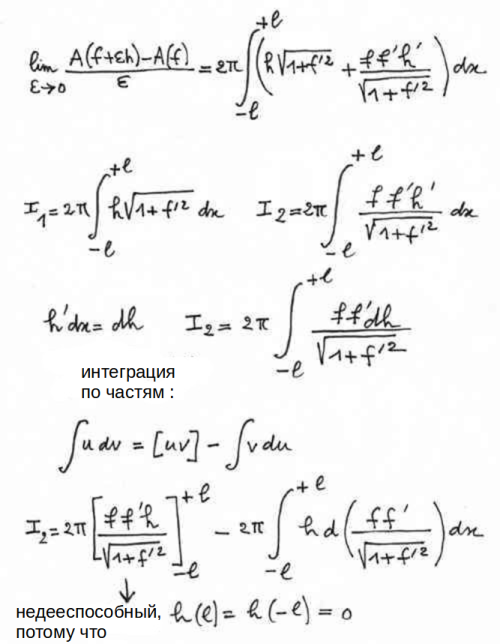 lim_{ε→0} \frac{A(f+εh)-A(f)}{ε} = 2π ∫_{-ℓ}^{+ℓ} (h√{1+f'^2} + \frac{ff'h'}{√{1+f'^2}}) dx
I_1 = 2π ∫_{-ℓ}^{+ℓ} h√{1+f'^2} dx I_2 = 2π ∫_{-ℓ}^{+ℓ} \frac{ff'h'}{√{1+f'^2}} dx
h'dx = dh I_2 = 2π ∫_{-ℓ}^{+ℓ} \frac{ff'dh}{√{1+f'^2}}
интеграция
по частям :
∫udv = [uv] - ∫vdu
I_2 = 2π [\frac{ff'h}{√{1+f'^2}}]_{-ℓ}^{+ℓ} - 2π ∫_{-ℓ}^{+ℓ} h d(\frac{ff'}{√{1+f'^2}}) dx
↓
недееспособный, h(ℓ) = h(-ℓ) = 0
потому что